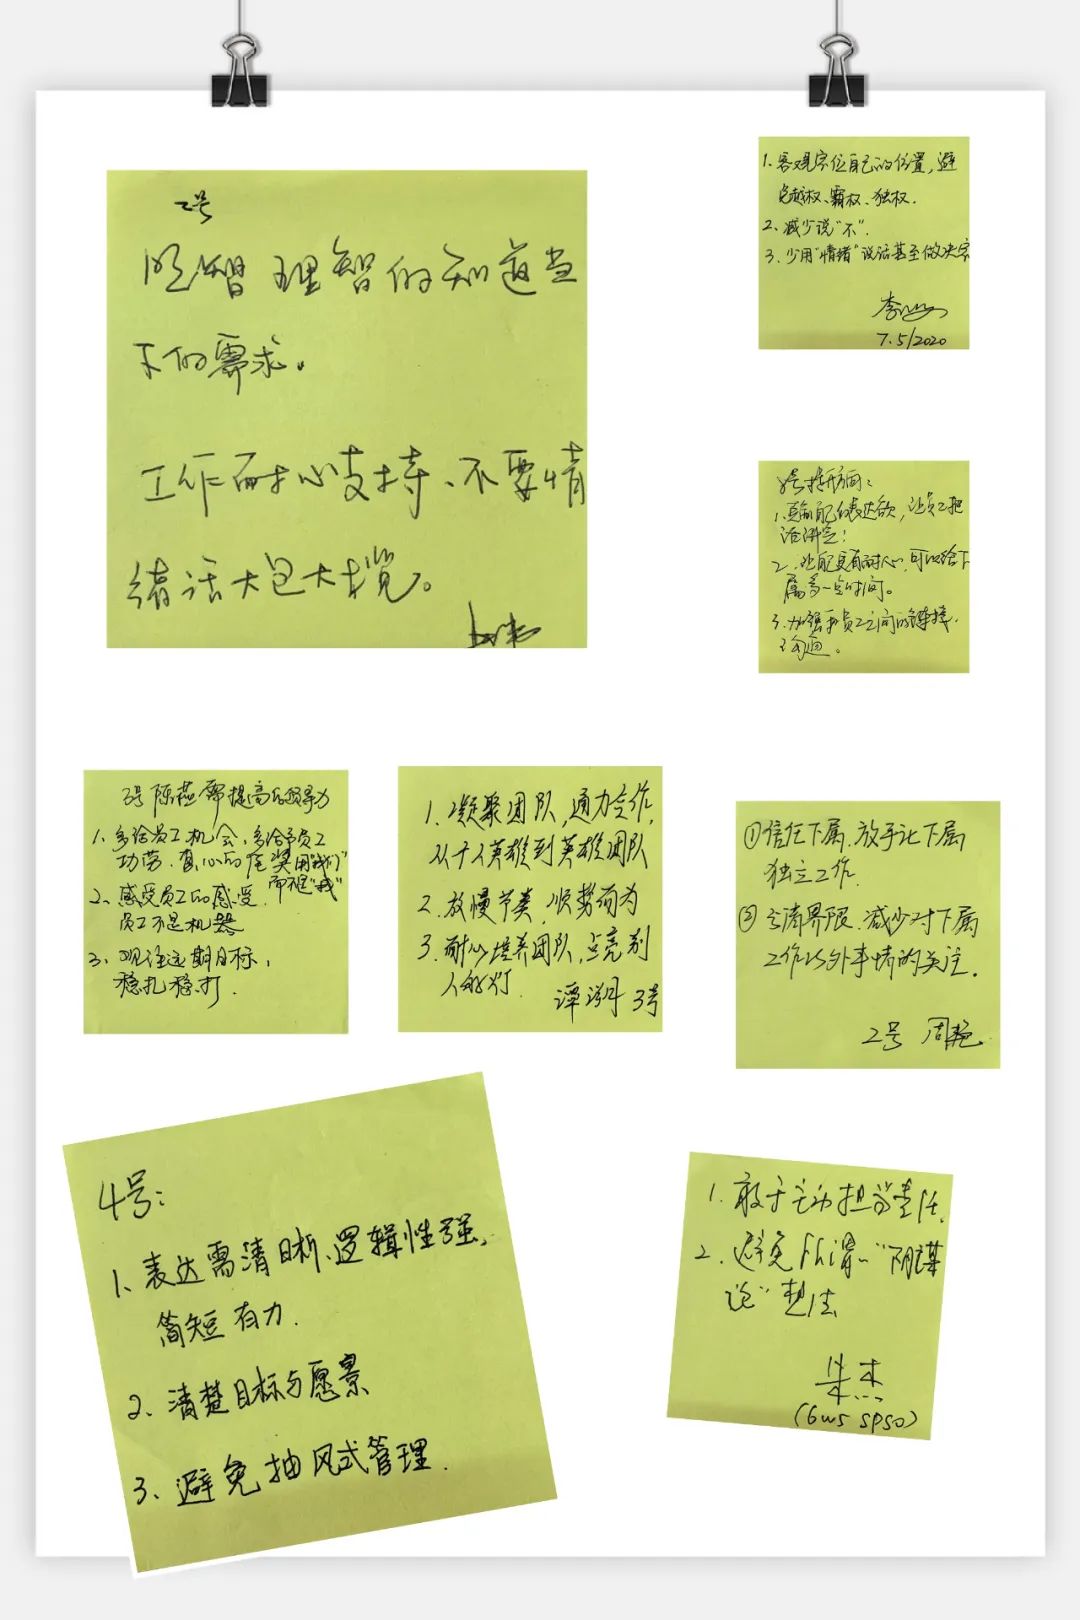 2号
明智 理智的知道当
下的需求。
工作耐心支持、不要情
绪话大包大揽。
1. 客观定位自己的位置,避
免越权、霸权、独权.
2、减少说"不".
3. 少用"情绪"说话甚至做决定
7.5/2020
1. 自己的表达欲,让员工把
话讲完!
2. 让自己更有耐心,可以给下
属多一点时间。
3. 加强和员工之间的链接,
沟通。
3号 陈燕 需提高的领导力
1、多给员工机会,多给予员工
功劳.真心的 夸奖用"我们"
而不是"我"
2、感受员工的感受.
员工不是机器
3、关注远期目标,
稳扎稳打.
1. 凝聚团队,通力合作,
从个人英雄到英雄团队
2. 放慢节奏,顺势而为
3. 耐心培养团队,点亮别
人的灯.
谭 3号
①信任下属.放手让下属
独立工作.
②分清界限.减少对下属
工作以外事情的关注.
2号 周艳
4号:
1、表达需清晰、逻辑性强,
简短有力.
2、清楚目标与愿景
3、避免抽风式管理.
1. 敢于主动担当责任.
2. 避免 "阴谋
论"想法
朱杰
(6w5 SPSO)